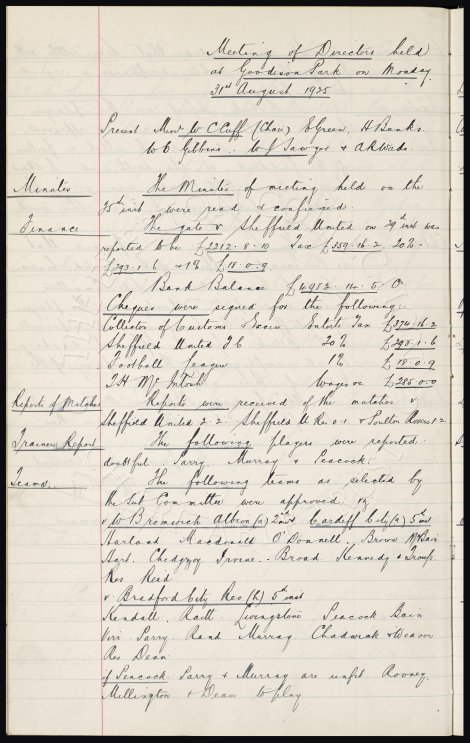 Meeting of Directors held
at Goodison Park on Monday
31st August 1925
Present Messrs W C Cuff (Chair) E Green, H Banks
W C Gibbins, W J Sawyer & A R Wade.
Minutes
The Minutes of meeting held on the
25th inst were read & confirmed.
Finance
The gate v Sheffield United on 29th inst was
reported to be £2212. 8. 10 Tax £359. 16. 2 20%
£293. 1. 6 & 1% £18. 0. 9.
Bank Balance £4982. 14. 5 Cr
Cheques were signed for the following:
Collector of Customs & Excise Entets Tax £374. 16. 2
Sheffield United FC 20% £293. 1. 6
Football League 1% £18. 0. 9
T H McIntosh Wages &c £286. 0. 0
Reports of Matches
Reports were received of the matches v
Sheffield United 2-2. Sheffield U Res 0-1 & Poulton Rovers 1-2
Trainers Report
The following players were reported
doubtful Parry, Murray & Peacock.
Teams
The following teams as selected by
the Sub Committee were approved viz
v W Bromwich Albion (a) 2nd inst & Cardiff City (a) 5th inst
Harland Macdonald O'Donnell, Brown McBain
Hart. Chedgzoy Irvine. Broad Kennedy & Troup.
Res Reid
v Bradford City Res (h) 5th inst
Kendall. Raitt Livingstone Peacock Bain
Parry. Rand Murray Chadwick & Weaver
Res Dean
if Peacock, Parry & Murray are unfit. Rooney,
Millington & Dean to play